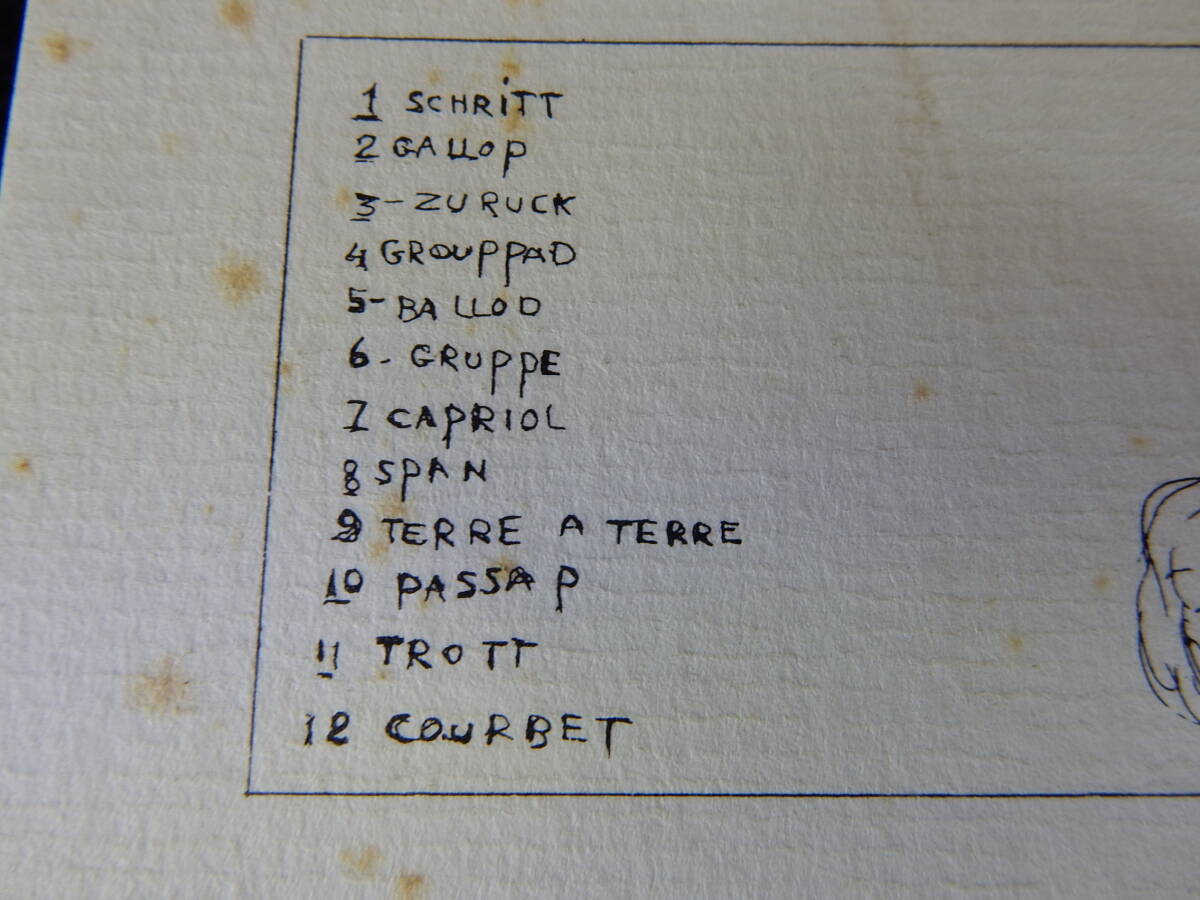 1 SCHRiTT
2 GALLOP
3- ZURUCK
4 GROUPPAD
5- BALLOD
6- GRUPPE
7 CAPRIOL
8 SPAN
9 TERRE A TERRE
10 PASSAP
11 TROTT
12 COURBET